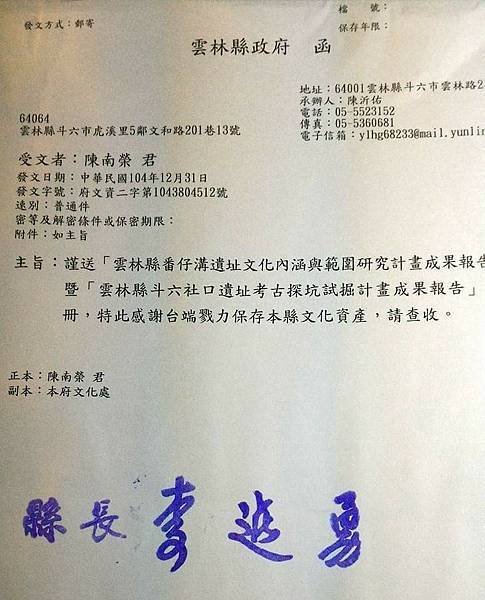 檔　號：
保存年限：
發文方式：郵寄
雲林縣政府　函
地址：64001雲林縣斗六市雲林路2
承辦人：陳沂佑
電話：05-5523152
傳真：05-5360681
電子信箱：ylhg68233@mail.yunlin
64064
雲林縣斗六市虎溪里5鄰文和路201巷13號
受文者：陳南榮 君
發文日期：中華民國104年12月31日
發文字號：府文資二字第1043804512號
速別：普通件
密等及解密條件或保密期限：
附件：如主旨
主旨：謹送「雲林縣番仔溝遺址文化內涵與範圍研究計畫成果報告
暨「雲林縣斗六社口遺址考古探坑試掘計畫成果報告」
冊，特此感謝台端戮力保存本縣文化資產，請查收。
正本：陳南榮 君
副本：本府文化處
縣長 李進勇